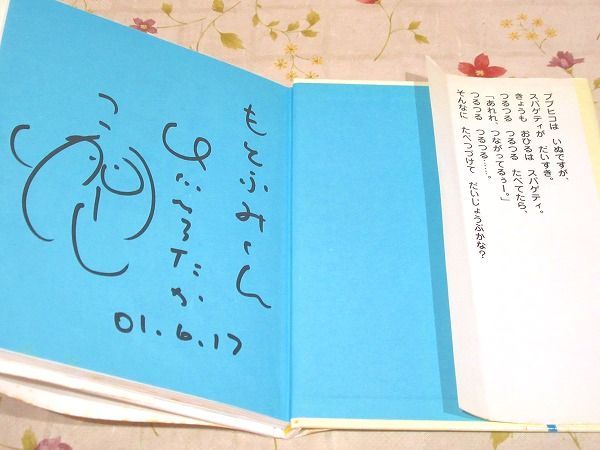 もとふみくん
01.6.17
ブブヒコは いぬですが、
スパゲティが だいすき。
きょうも おひるは スパゲティ。
つるつる つるつる たべてたら、
「あれれ、つながってるぅー。」
つるつる つるつる……。
そんなに たべつづけて だいじょうぶかな?